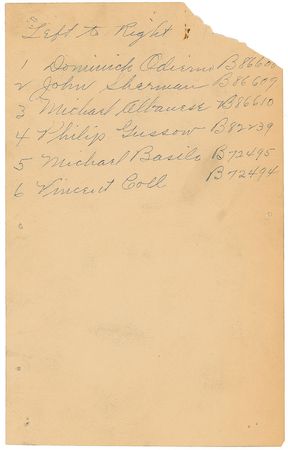 Left to Right
1 Dominick Odierno B8660
2 John Sherman B86609
3 Michael Albanese B86610
4 Philip Gussow B82239
5 Michael Basile B72495
6 Vincent Coll B72494